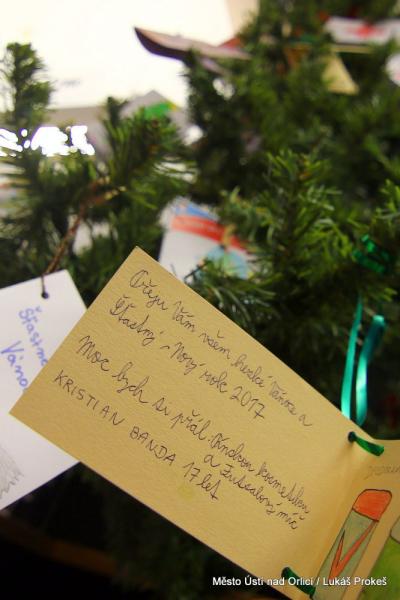 Přeju Vám všem hezké Vánoce a
Šťastný Nový rok 2017
Moc bych si přál: kosmetiku
a fussalový míč
KRISTIAN BANDA 17 let
Šťastné
Váno
Město Ústí nad Orlicí / Lukáš Prokeš